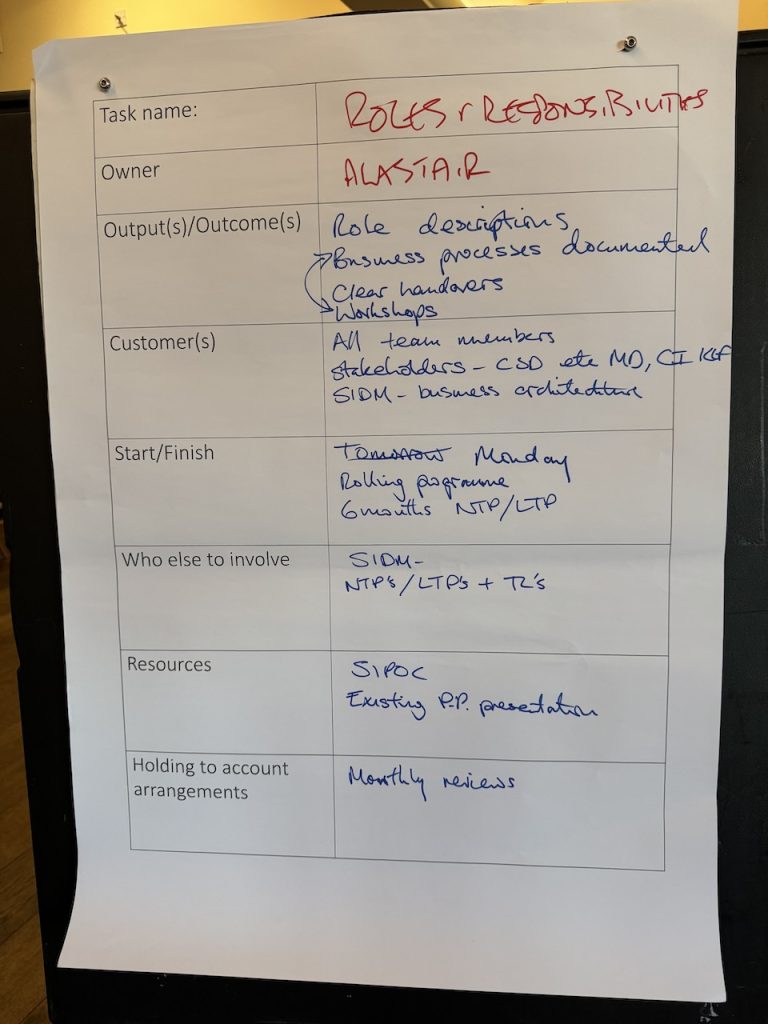 Task name:
ROLES & RESPONSIBILITIES
Owner
ALASTAIR
Output(s)/Outcome(s)
Role descriptions
Business processes documented
Clear handovers
Workshops
Customer(s)
All team members
Stakeholders - CSD etc MD, CI
SIDM - business architecture
Start/Finish
Tomorrow Monday
Rolling programme
6 months NTP/LTP
Who else to involve
SIDM -
NTP's/LTP's + TL's
Resources
SIPOC
Existing P.P. presentation
Holding to account
arrangements
Monthly reviews